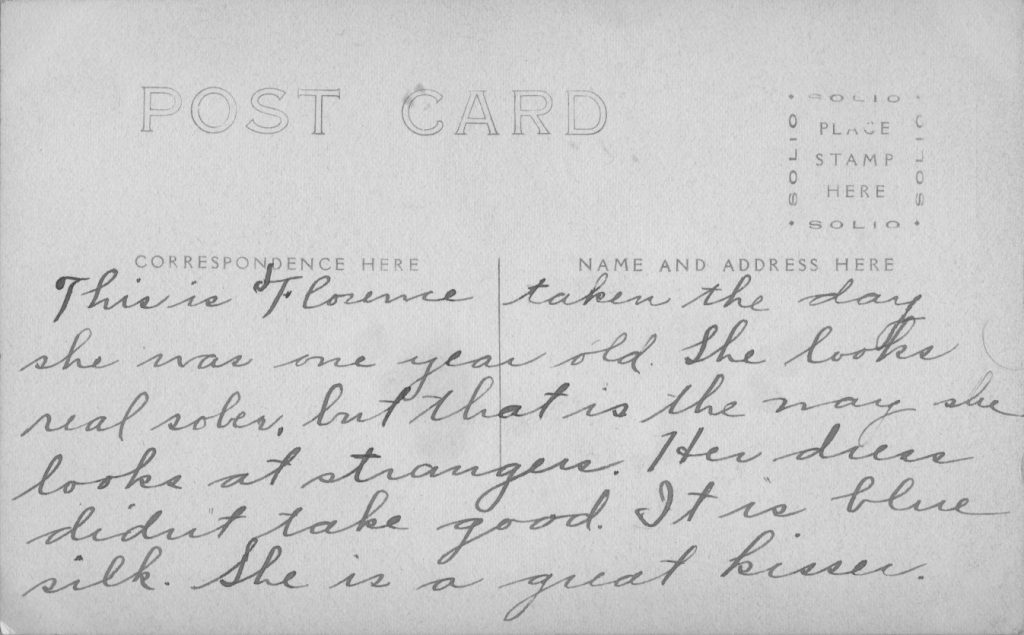 POST CARD
SOLIO
SOLIO
PLACE
STAMP
HERE
SOLIO
SOLIO
CORRESPONDENCE HERE
NAME AND ADDRESS HERE
This is Florence taken the day
she was one year old. She looks
real sober, but that is the way she
looks at strangers. Her dress
didn't take good. It is blue
silk. She is a great kisser.